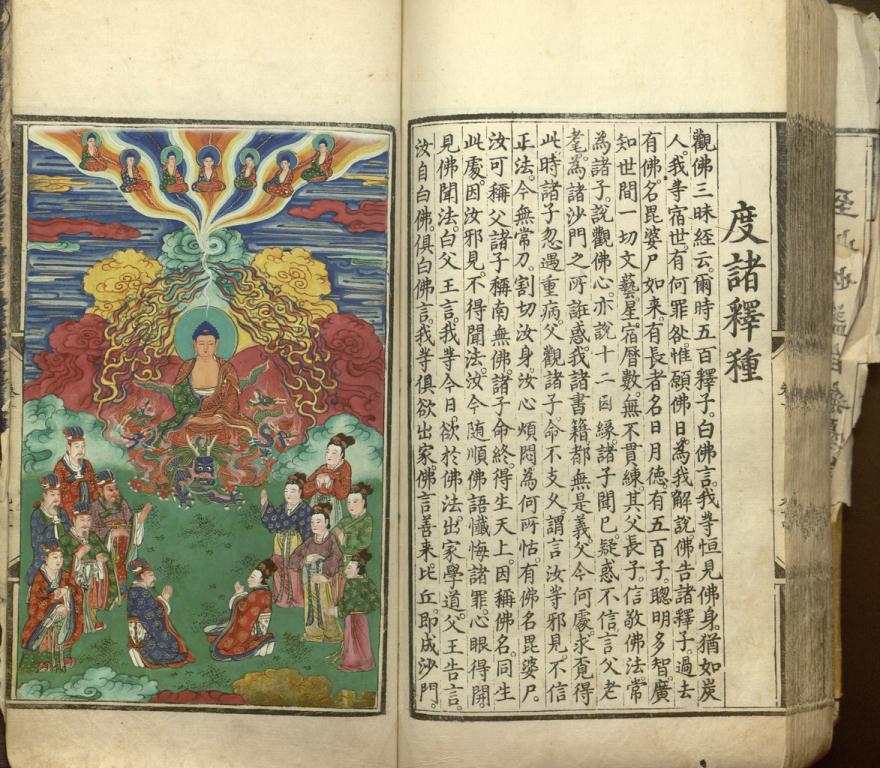 度諸釋種
觀佛三昧經云。爾時五百釋子。白佛言。我等恒見佛身。猶如炭
人。我等宿世。有何罪咎。惟願佛日。為我解說。佛告諸釋子。過去
有佛。名毘婆尸如來。有長者名日月德。有五百子。聰明多智。廣
知世間一切文藝。星宿曆數。無不貫練。其父長子。信敬佛法。常
為諸子。說觀佛心。亦說十二因緣。諸子聞已。疑惑不信。言父老
耄。為諸沙門之所誑惑。我諸書籍。都無是義。父今何處。求覓得
此。時諸子忽遇重病。父觀諸子。命不支久。謂言汝等邪見。不信
正法。今無常刀。割切汝身。汝心煩悶。為何所怙。有佛名毘婆尸。
汝可稱父。諸子稱南無佛。諸子命終。得生天上。因稱佛名。同生
此處。因汝邪見。不得聞法。汝今隨順佛語。懺悔諸罪。心眼得開。
見佛聞法。白父王言。我等今日。欲於佛法。出家學道。父王告言。
汝自白佛。俱白佛言。我等俱欲出家。佛言善來比丘。即成沙門。